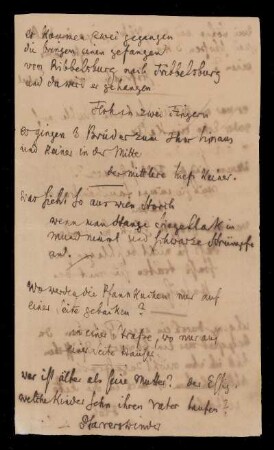 es kommen zwei gegangen
die bringen einen gefangen
von Ribbelsburg nach Fribbelsburg
und da wird er gehangen
Floh in zwei Fingern
es gingen 3 Brüder zum Thor hinaus
und keiner in der Mitte
der mittlere hieß Keiner.
was sieht so aus wie Storch
wenn man Stange Siegellack in
Mund nimmt und schwarze Strümpfe
an.
Wo werden die Pfannkuchen nur auf
einer Seite gebacken?
in einer Straße, wo nur auf
einer Seite Häuser
was ist älter als seine Mutter? der Essig
welche Kinder sehn ihren Vater taufen?
Pfarrerskinder